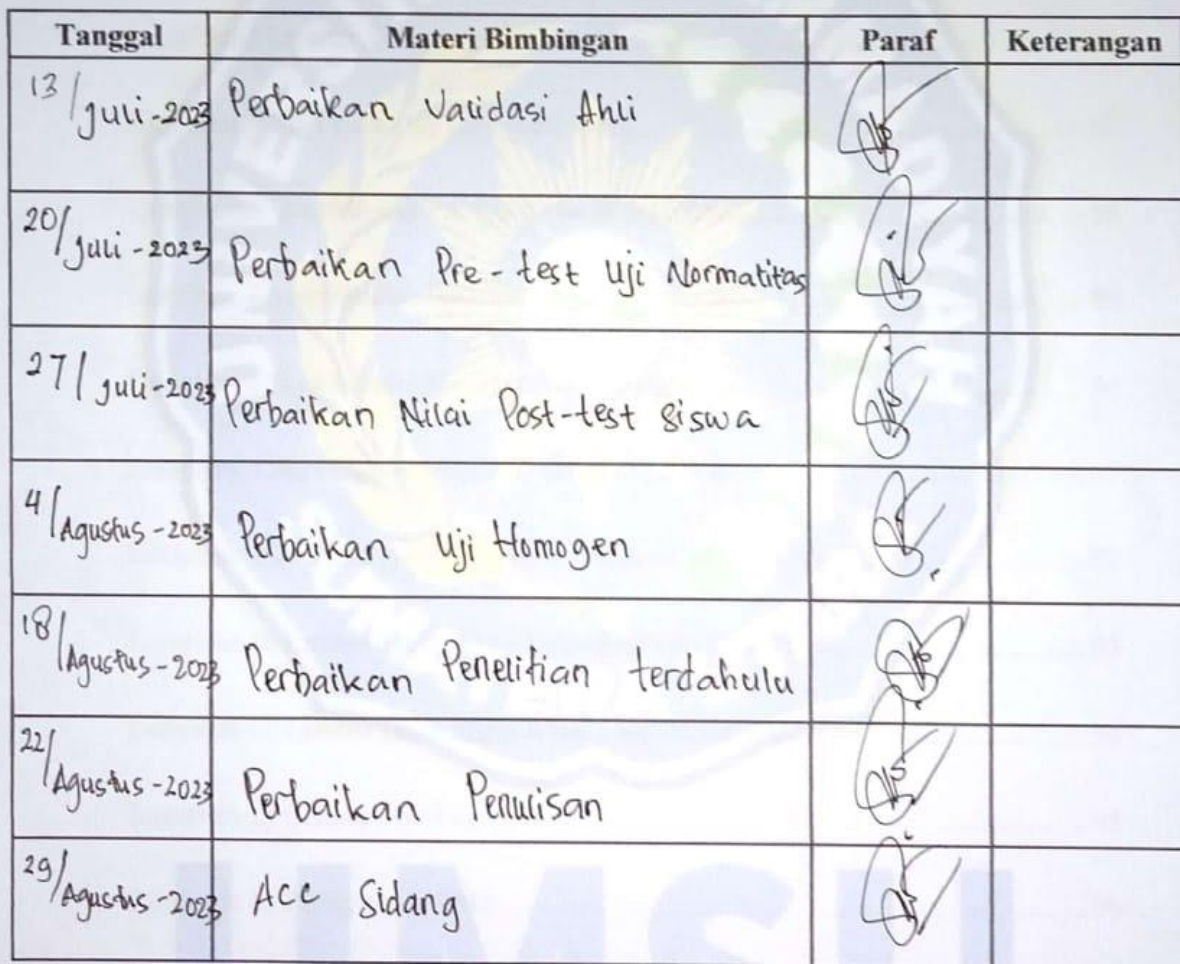 Tanggal Materi Bimbingan Paraf Keterangan
13/Juli-2023 Perbaikan Validasi Ahli
20/Juli-2023 Perbaikan Pre-test Uji Normatitas
27/Juli-2023 Perbaikan Nilai Post-test Siswa
4/Agustus-2023 Perbaikan Uji Homogen
18/Agustus-2023 Perbaikan Penelitian terdahulu
22/Agustus-2023 Perbaikan Penulisan
29/Agustus-2023 Acc Sidang
UMSU